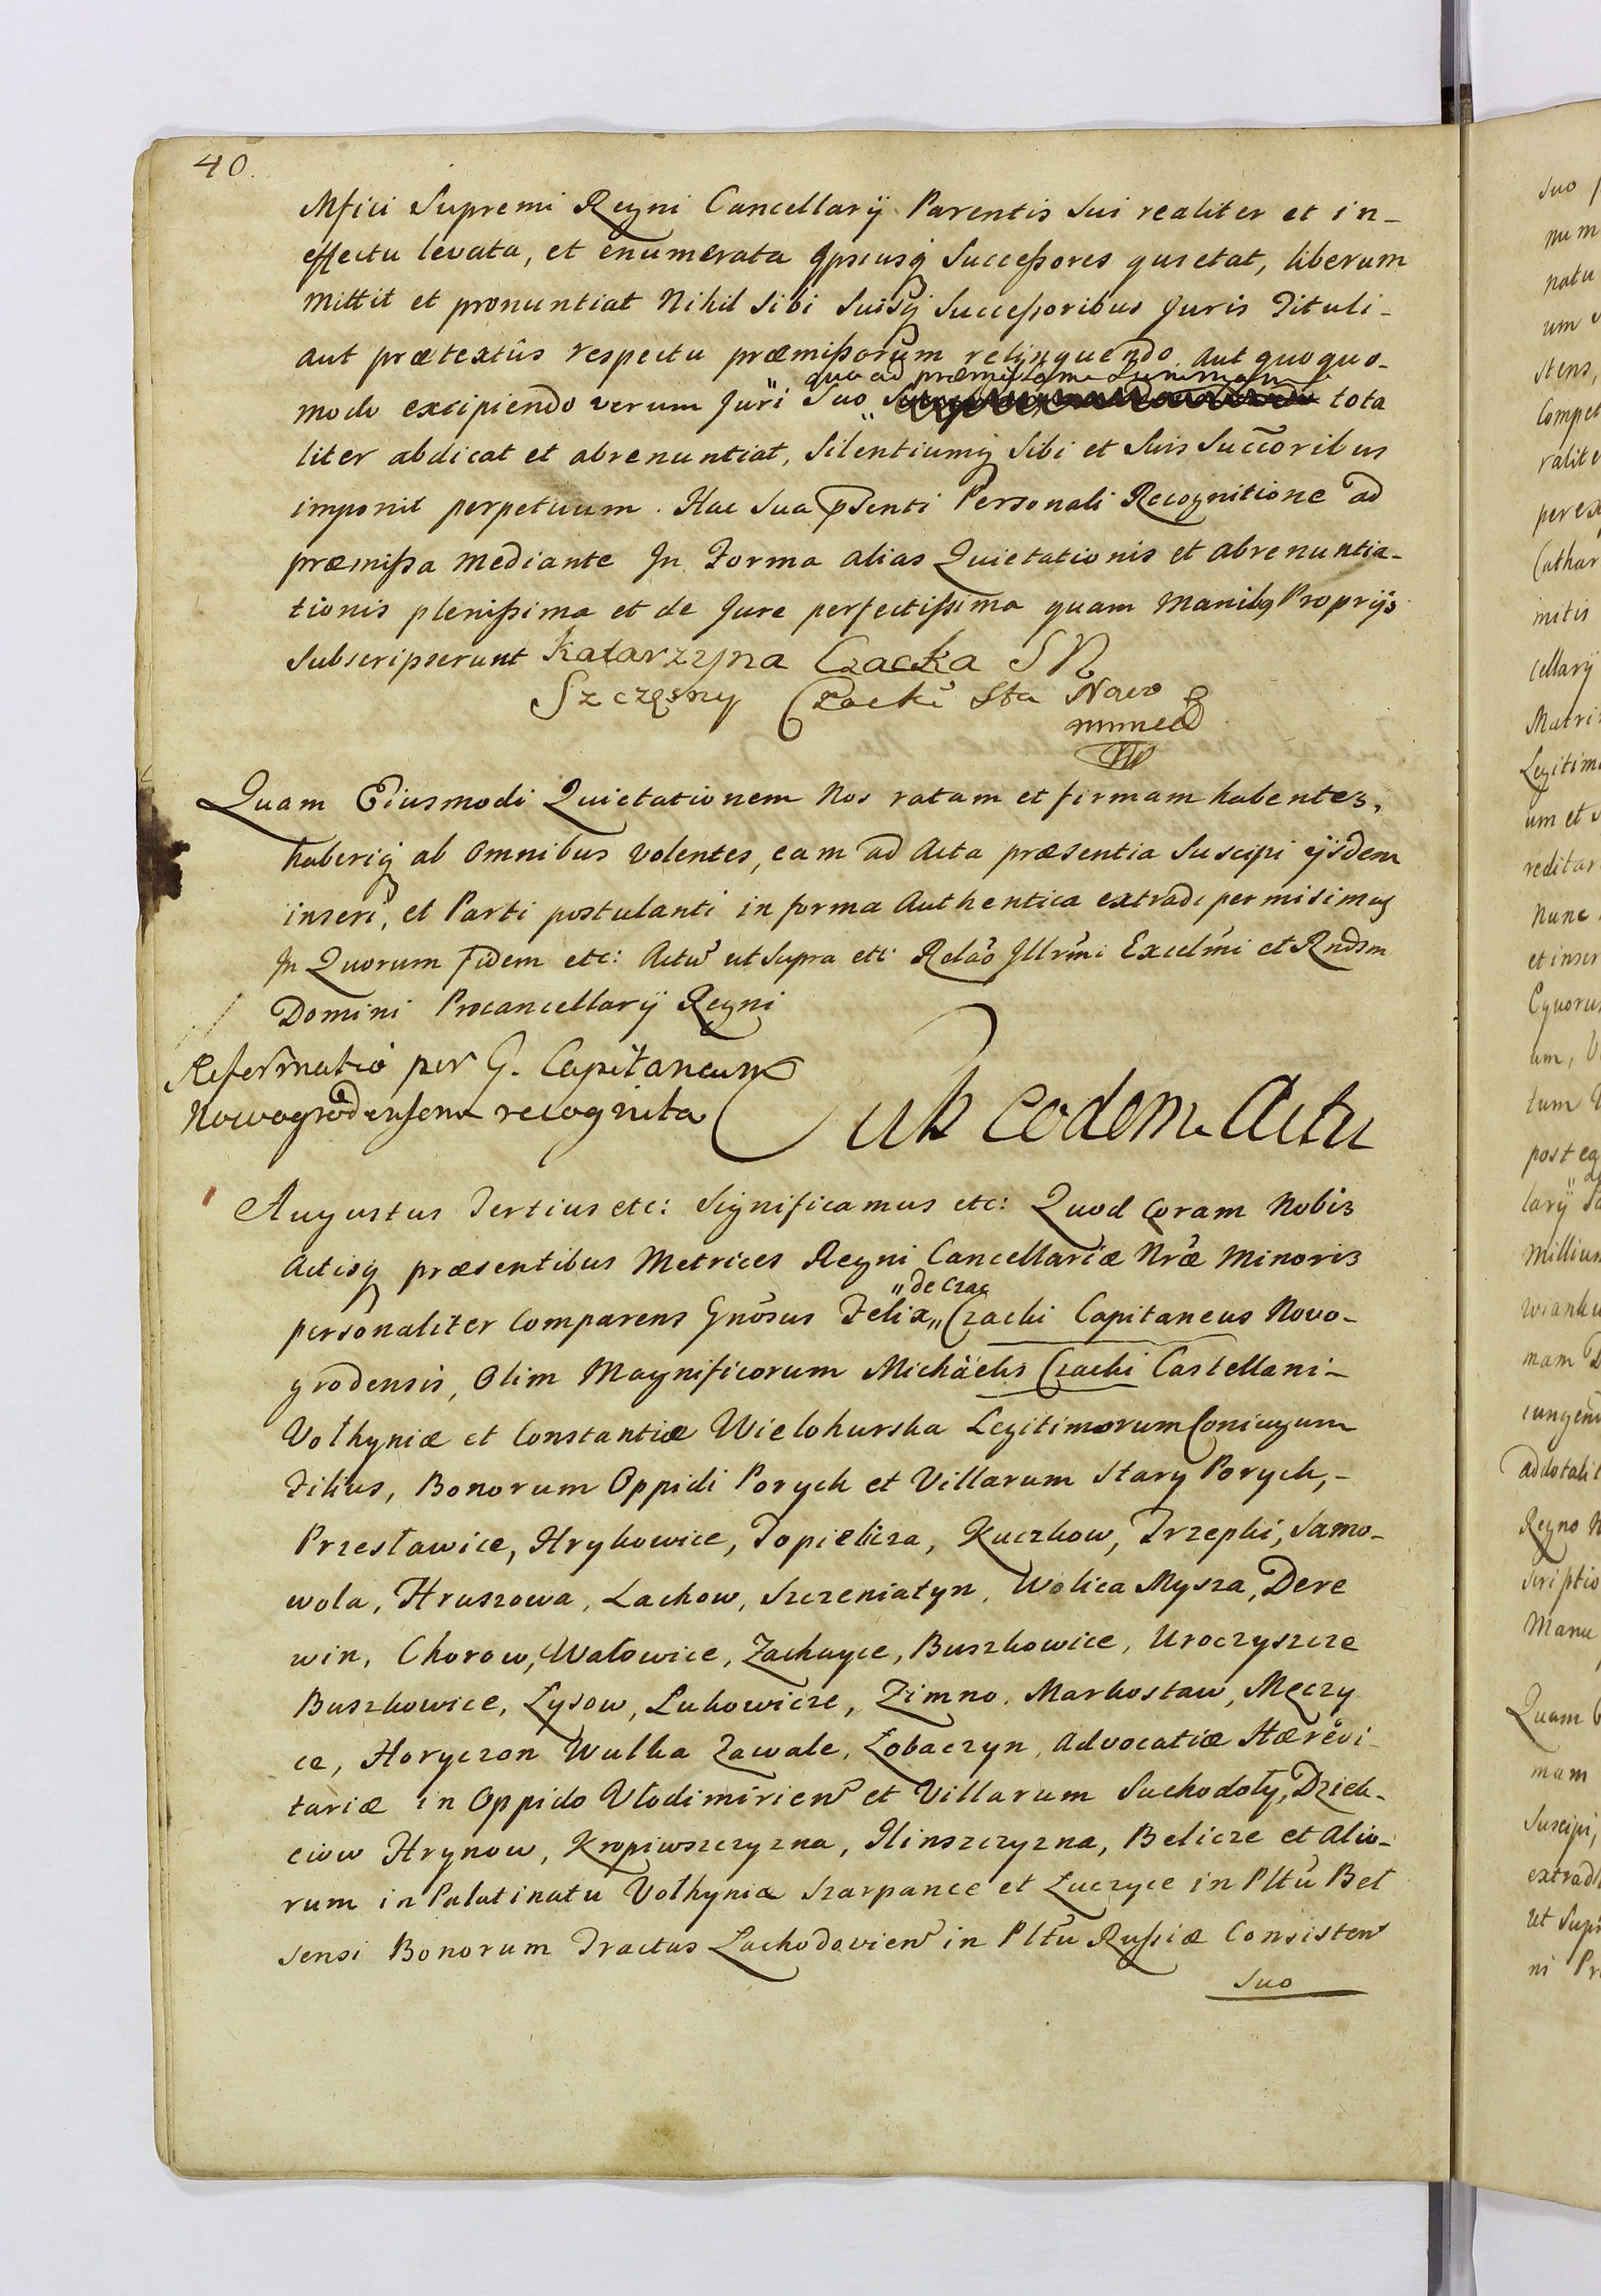 40.
Mfici Supremi Regni Cancellarij Parentis Sui realiter et in-
effectu levata, et enumerata Ipsiusq Successores quietat, liberum
mittit et pronuntiat Nihil sibi Suisq Successoribus Juris Tituli-
aut prætextûs respectu præmissorum relinquendo aut quoquo-
quo ad præmissam Summam
modo excipiendo verum Juri Suo tota
liter abdicat et abrenuntiat, Silentiumq Sibi et Suis Succoribus
imponit perpetuum. Hac Sua pSenti Personali Recognitione ad
præmissa mediante In Forma alias Quietationis et abrenuntia-
tionis plenissima et de Jure perfectissima quam Manibq Proprijs
Subscripserunt Katarzyna Czacka SN
Szczęsny Czacki Sta Nowo
Quam Eiusmodi Quietationem Nos ratam et firmam habentes,
haberiq ab Omnibus volentes, eam ad Acta præsentia Suscipi ijsdem
inseri, et Parti postulanti in forma Authentica extradi permisimus
In Quorum fidem etc: Actu ut Supra etc: Relao Illrmi Excelmi et Rndsm
Domini Procancellarij Regni
Reformatio per G. Capitaneum
Nowogrodensem recognita
Sub eodem Actu
Augustus Tertius etc: Significamus etc: Quod Coram Nobis
Actisq præsentibus Metrices Regni Cancellariæ Nræ Minoris
"de Czac
personaliter Comparens Gnosus Felix" Czacki Capitaneus Novo-
grodensis, Olim Magnificorum Michäelis Czacki Castellani-
Volhyniæ et Constantiæ Wielohurska Legitimorum Coniugum
Filius, Bonorum Oppidi Poryck et Villarum Stary Poryck,-
Przesławice, Hrykowice, Topieliza, Kuczkow, Trzepki, Samo-
wola, Hruszowa, Lachow, Szczeniatyn, Wolica Mysza, Dere
win, Chorow, Wałowice, Zachayce, Buszkowice, Uroczyszcze
Buszkowice, Łysow, Lukowicze, Zimno, Markostaw, Męczy
ce, Horyczon Wulka Zawale, Łobaczyn, Advocatiæ Hæredi-
tariæ in Oppido Vlodimirien et Villarum Suchodoły, Dziek-
ciow Hrynow, Kropiwszczyzna, Ilinszczyzna, Belicze et Alio-
rum in Palatinatu Volhyniæ Szarpance et Łuczyce in Pltu Bel
sensi Bonorum Tractus Lachodovien in Pltu Russiæ Consisten
Suo